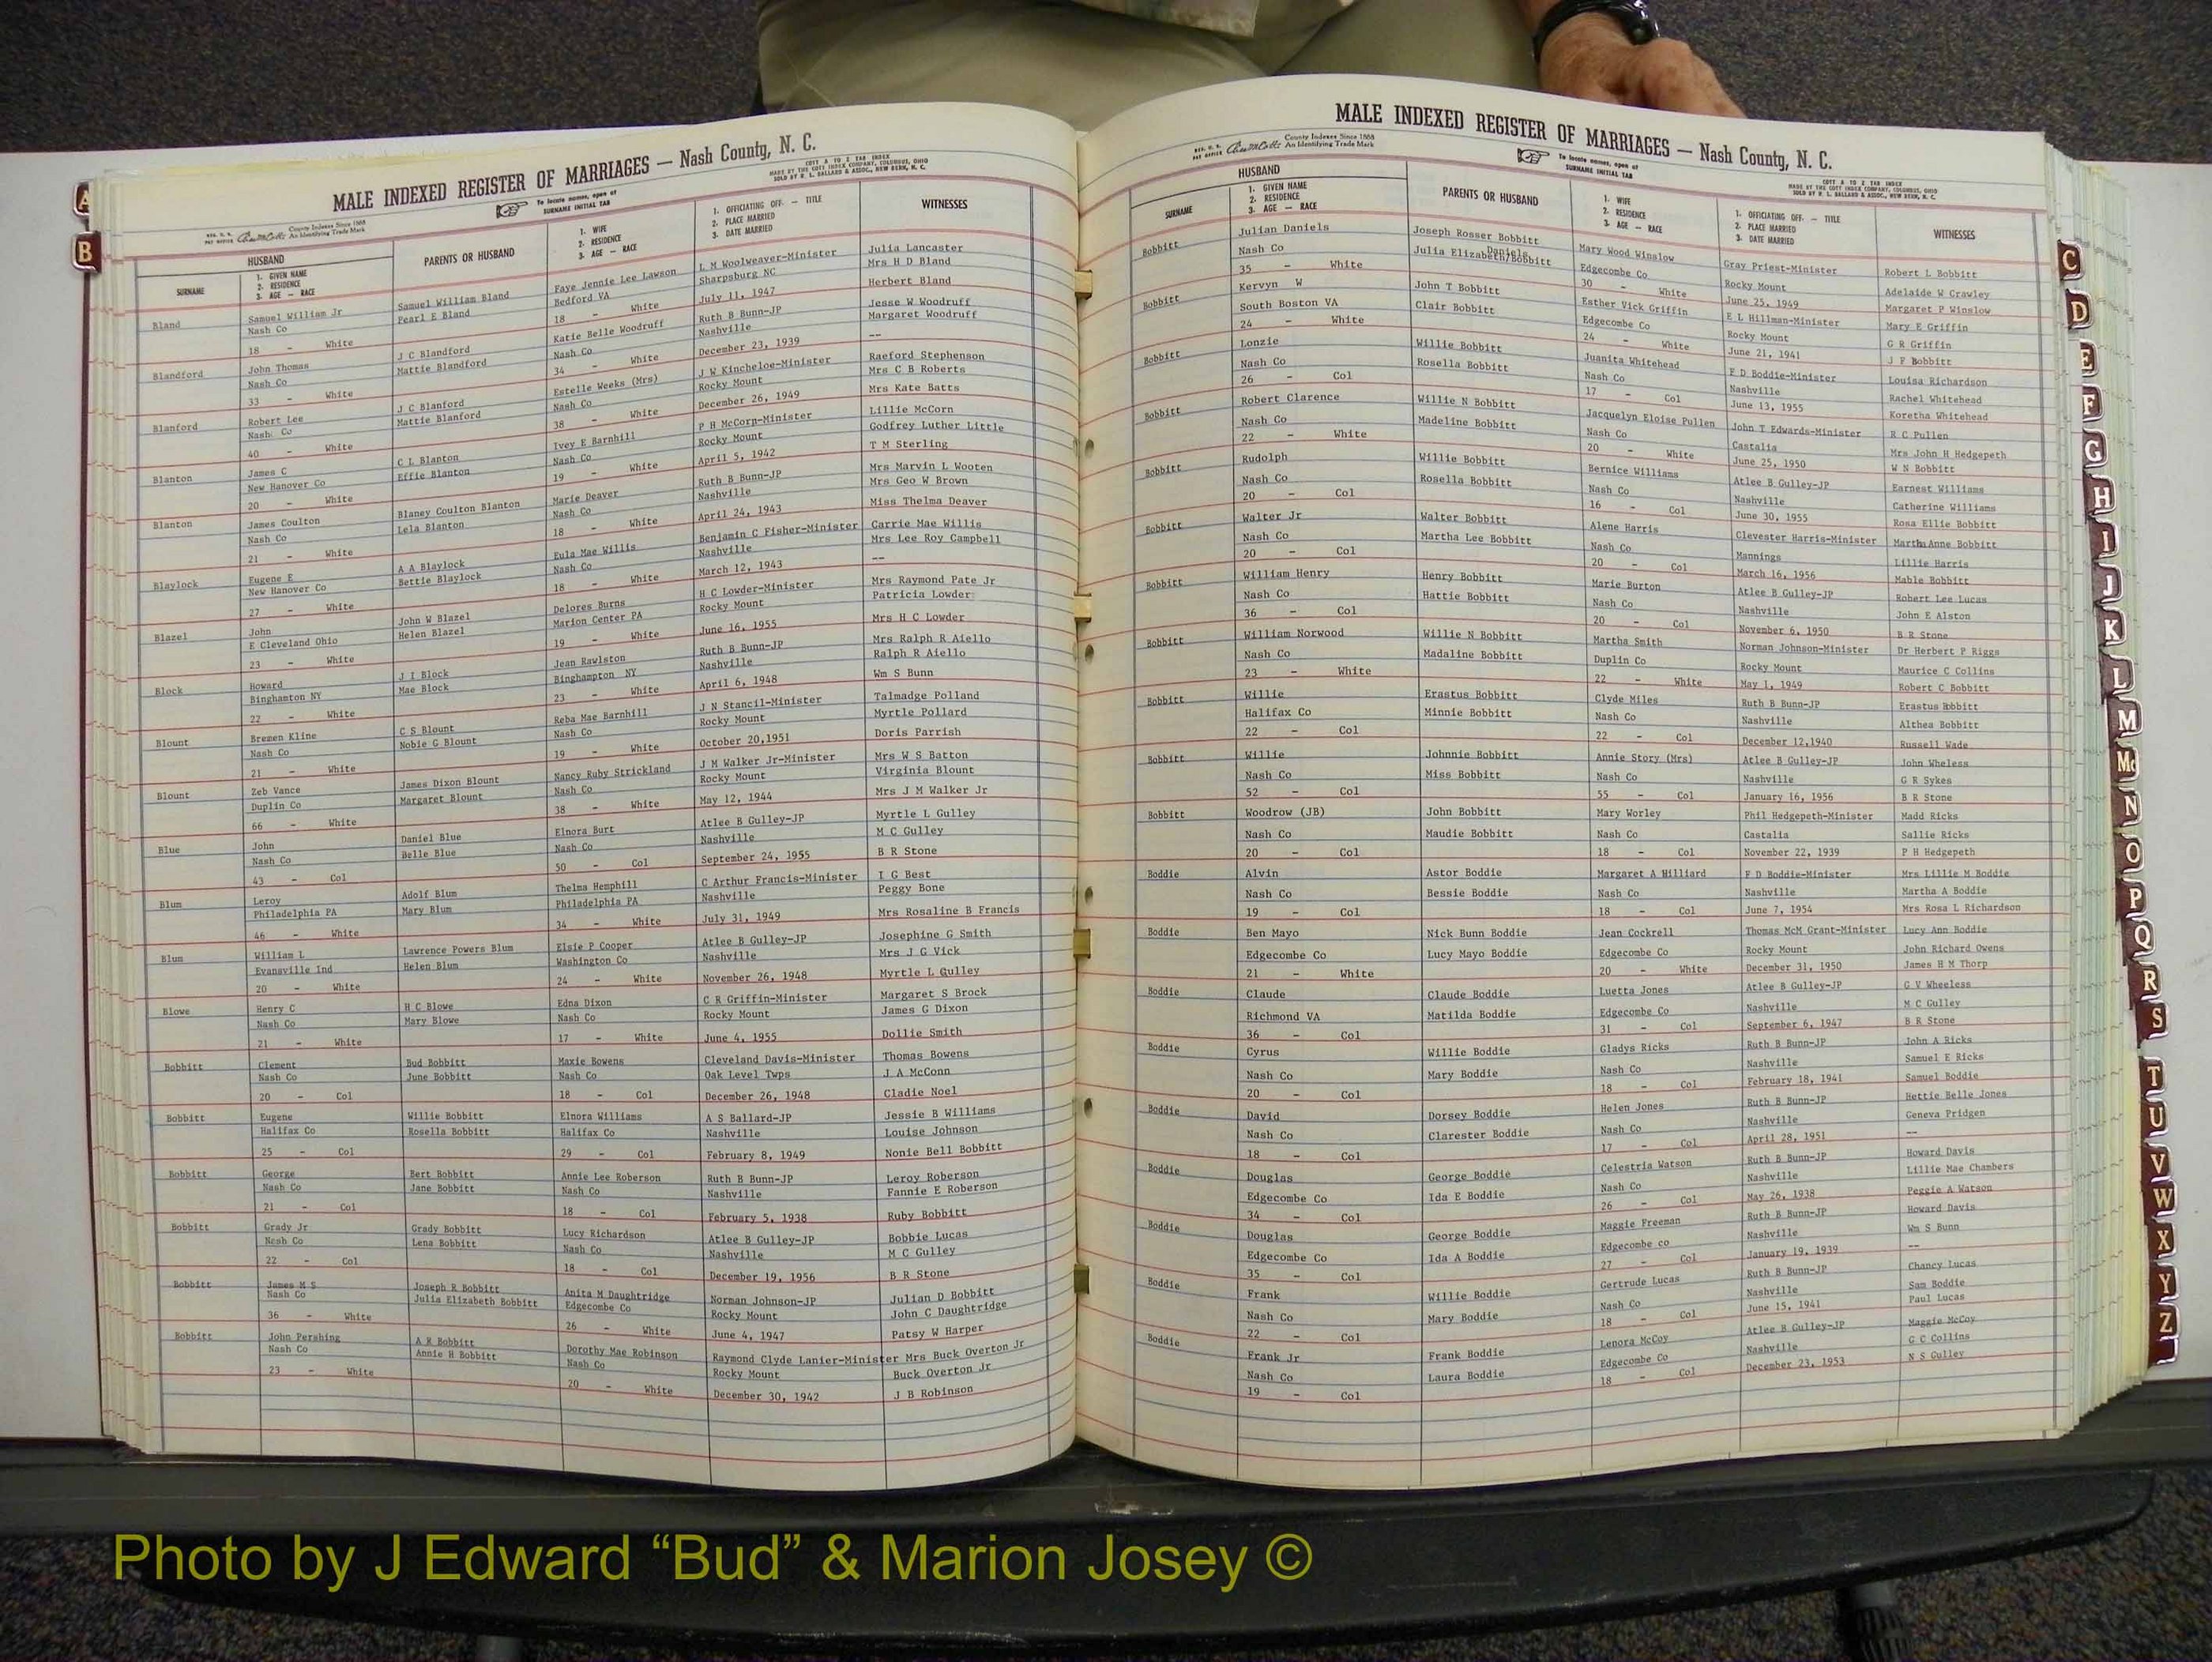 MALE INDEXED REGISTER OF MARRIAGES — Nash County, N. C.
County Indexes Since 1888
An Identifying Trade Mark
To locate names, open at
SURNAME INITIAL TAB
COTT A TO Z TAB INDEX
MADE BY THE COTT INDEX COMPANY, COLUMBUS, OHIO
SOLD BY R. L. BALLARD & ASSOC., NEW BERN, N. C.
HUSBAND
SURNAME
1. GIVEN NAME
2. RESIDENCE
3. AGE — RACE
PARENTS OR HUSBAND
1. WIFE
2. RESIDENCE
3. AGE — RACE
1. OFFICIATING OFF. — TITLE
2. PLACE MARRIED
3. DATE MARRIED
WITNESSES
Bland Samuel William Jr Samuel William Bland Faye Jennie Lee Lawson L M Woolweaver-Minister Julia Lancaster
Nash Co Pearl E Bland Bedford VA Sharpsburg NC Mrs H D Bland
18 - White 18 - White July 11, 1947 Herbert Bland
Blandford John Thomas J C Blandford Katie Belle Woodruff Ruth B Bunn-JP Jesse W Woodruff
Nash Co Mattie Blandford Nash Co Nashville Margaret Woodruff
33 - White 34 - White December 23, 1939 --
Blanford Robert Lee J C Blanford Estelle Weeks (Mrs) J W Kincheloe-Minister Raeford Stephenson
Nash Co Mattie Blanford Nash Co Rocky Mount Mrs C B Roberts
40 - White 38 - White December 26, 1949 Mrs Kate Batts
Blanton James C C L Blanton Ivey E Barnhill P H McCorn-Minister Lillie McCorn
New Hanover Co Effie Blanton Nash Co Rocky Mount Godfrey Luther Little
20 - White 19 - White April 5, 1942 T M Sterling
Blanton James Coulton Blaney Coulton Blanton Marie Deaver Ruth B Bunn-JP Mrs Marvin L Wooten
Nash Co Lela Blanton Nash Co Nashville Mrs Geo W Brown
21 - White 18 - White April 24, 1943 Miss Thelma Deaver
Blaylock Eugene E A A Blaylock Eula Mae Willis Benjamin C Fisher-Minister Carrie Mae Willis
New Hanover Co Bettie Blaylock Nash Co Nashville Mrs Lee Roy Campbell
27 - White 18 - White March 12, 1943 --
Blazel John John W Blazel Delores Burns H C Lowder-Minister Mrs Raymond Pate Jr
E Cleveland Ohio Helen Blazel Marion Center PA Rocky Mount Patricia Lowder
23 - White 19 - White June 16, 1955 Mrs H C Lowder
Block Howard J I Block Jean Rawlston Ruth B Bunn-JP Mrs Ralph R Aiello
Binghamton NY Mae Block Binghampton NY Nashville Ralph R Aiello
22 - White 23 - White April 6, 1948 Wm S Bunn
Blount Bremen Kline C S Blount Reba Mae Barnhill J N Stancil-Minister Talmadge Polland
Nash Co Nobie G Blount Nash Co Rocky Mount Myrtle Pollard
21 - White 19 - White October 20,1951 Doris Parrish
Blount Zeb Vance James Dixon Blount Nancy Ruby Strickland J M Walker Jr-Minister Mrs W S Batton
Duplin Co Margaret Blount Nash Co Rocky Mount Virginia Blount
66 - White 38 - White May 12, 1944 Mrs J M Walker Jr
Blue John Daniel Blue Elnora Burt Atlee B Gulley-JP Myrtle L Gulley
Nash Co Belle Blue Nash Co Nashville M C Gulley
43 - Col 50 - Col September 24, 1955 B R Stone
Blum Leroy Adolf Blum Thelma Hemphill C Arthur Francis-Minister I G Best
Philadelphia PA Mary Blum Philadelphia PA Nashville Peggy Bone
46 - White 34 - White July 31, 1949 Mrs Rosaline B Francis
Blum William L Lawrence Powers Blum Elsie P Cooper Atlee B Gulley-JP Josephine G Smith
Evansville Ind Helen Blum Washington Co Nashville Mrs J G Vick
20 - White 24 - White November 26, 1948 Myrtle L Gulley
Blowe Henry C H C Blowe Edna Dixon C R Griffin-Minister Margaret S Brock
Nash Co Mary Blowe Nash Co Rocky Mount James G Dixon
21 - White 17 - White June 4, 1955 Dollie Smith
Bobbitt Clement Bud Bobbitt Maxie Bowens Cleveland Davis-Minister Thomas Bowens
Nash Co June Bobbitt Nash Co Oak Level Twps J A McConn
20 - Col 18 - Col December 26, 1948 Cladie Noel
Bobbitt Eugene Willie Bobbitt Elnora Williams A S Ballard-JP Jessie B Williams
Halifax Co Rosella Bobbitt Halifax Co Nashville Louise Johnson
25 - Col 29 - Col February 8, 1949 Nonie Bell Bobbitt
Bobbitt George Bert Bobbitt Annie Lee Roberson Ruth B Bunn-JP Leroy Roberson
Nash Co Jane Bobbitt Nash Co Nashville Fannie E Roberson
21 - Col 18 - Col February 5, 1938 Ruby Bobbitt
Bobbitt Grady Jr Grady Bobbitt Lucy Richardson Atlee B Gulley-JP Bobbie Lucas
Nash Co Lena Bobbitt Nash Co Nashville M C Gulley
22 - Col 18 - Col December 19, 1956 B R Stone
Bobbitt James M S Joseph R Bobbitt Anita M Daughtridge Norman Johnson-JP Julian D Bobbitt
Nash Co Julia Elizabeth Bobbitt Edgecombe Co Rocky Mount John C Daughtridge
36 - White 26 - White June 4, 1947 Patsy W Harper
Bobbitt John Pershing A R Bobbitt Dorothy Mae Robinson Raymond Clyde Lanier-Minister Mrs Buck Overton Jr
Nash Co Annie H Bobbitt Nash Co Rocky Mount Buck Overton Jr
23 - White 20 - White December 30, 1942 J B Robinson
MALE INDEXED REGISTER OF MARRIAGES — Nash County, N. C.
County Indexes Since 1888
An Identifying Trade Mark
To locate names, open at
SURNAME INITIAL TAB
COTT A TO Z TAB INDEX
MADE BY THE COTT INDEX COMPANY, COLUMBUS, OHIO
SOLD BY R. L. BALLARD & ASSOC., NEW BERN, N. C.
HUSBAND
SURNAME
1. GIVEN NAME
2. RESIDENCE
3. AGE — RACE
PARENTS OR HUSBAND
1. WIFE
2. RESIDENCE
3. AGE — RACE
1. OFFICIATING OFF. — TITLE
2. PLACE MARRIED
3. DATE MARRIED
WITNESSES
Bobbitt Julian Daniels Joseph Rosser Bobbitt Mary Wood Winslow Gray Priest-Minister Robert L Bobbitt
Nash Co Julia Elizabeth Daniels/Bobbitt Edgecombe Co Rocky Mount Adelaide W Crawley
35 - White 30 - White June 25, 1949 Margaret P Winslow
Bobbitt Kervyn W John T Bobbitt Esther Vick Griffin E L Hillman-Minister Mary E Griffin
South Boston VA Clair Bobbitt Edgecombe Co Rocky Mount G R Griffin
24 - White 24 - White June 21, 1941 J F Bobbitt
Bobbitt Lonzie Willie Bobbitt Juanita Whitehead F D Boddie-Minister Louisa Richardson
Nash Co Rosella Bobbitt Nash Co Nashville Rachel Whitehead
26 - Col 17 - Col June 13, 1955 Koretha Whitehead
Bobbitt Robert Clarence Willie N Bobbitt Jacquelyn Eloise Pullen John T Edwards-Minister R C Pullen
Nash Co Madeline Bobbitt Nash Co Castalia Mrs John H Hedgepeth
22 - White 20 - White June 25, 1950 W N Bobbitt
Bobbitt Rudolph Willie Bobbitt Bernice Williams Atlee B Gulley-JP Earnest Williams
Nash Co Rosella Bobbitt Nash Co Nashville Catherine Williams
20 - Col 16 - Col June 30, 1955 Rosa Ellie Bobbitt
Bobbitt Walter Jr Walter Bobbitt Alene Harris Clevester Harris-Minister Martha Anne Bobbitt
Nash Co Martha Lee Bobbitt Nash Co Mannings Lillie Harris
20 - Col 20 - Col March 16, 1956 Mable Bobbitt
Bobbitt William Henry Henry Bobbitt Marie Burton Atlee B Gulley-JP Robert Lee Lucas
Nash Co Hattie Bobbitt Nash Co Nashville John E Alston
36 - Col 20 - Col November 6, 1950 B R Stone
Bobbitt William Norwood Willie N Bobbitt Martha Smith Norman Johnson-Minister Dr Herbert P Riggs
Nash Co Madaline Bobbitt Duplin Co Rocky Mount Maurice C Collins
23 - White 22 - White May 1, 1949 Robert C Bobbitt
Bobbitt Willie Erastus Bobbitt Clyde Miles Ruth B Bunn-JP Erastus Bobbitt
Halifax Co Minnie Bobbitt Nash Co Nashville Althea Bobbitt
22 - Col 22 - Col December 12,1940 Russell Wade
Bobbitt Willie Johnnie Bobbitt Annie Story (Mrs) Atlee B Gulley-JP John Wheless
Nash Co Miss Bobbitt Nash Co Nashville G R Sykes
52 - Col 55 - Col January 16, 1956 B R Stone
Bobbitt Woodrow (JB) John Bobbitt Mary Worley Phil Hedgepeth-Minister Madd Ricks
Nash Co Maudie Bobbitt Nash Co Castalia Sallie Ricks
20 - Col 18 - Col November 22, 1939 P H Hedgepeth
Boddie Alvin Astor Boddie Margaret A Hilliard F D Boddie-Minister Mrs Lillie M Boddie
Nash Co Bessie Boddie Nash Co Nashville Martha A Boddie
19 - Col 18 - Col June 7, 1954 Mrs Rosa L Richardson
Boddie Ben Mayo Nick Bunn Boddie Jean Cockrell Thomas McM Grant-Minister Lucy Ann Boddie
Edgecombe Co Lucy Mayo Boddie Edgecombe Co Rocky Mount John Richard Owens
21 - White 20 - White December 31, 1950 James H M Thorp
Boddie Claude Claude Boddie Luetta Jones Atlee B Gulley-JP G V Wheeless
Richmond VA Matilda Boddie Edgecombe Co Nashville M C Gulley
36 - Col 31 - Col September 6, 1947 B R Stone
Boddie Cyrus Willie Boddie Gladys Ricks Ruth B Bunn-JP John A Ricks
Nash Co Mary Boddie Nash Co Nashville Samuel E Ricks
20 - Col 18 - Col February 18, 1941 Samuel Boddie
Boddie David Dorsey Boddie Helen Jones Ruth B Bunn-JP Hettie Belle Jones
Nash Co Clarester Boddie Nash Co Nashville Geneva Pridgen
18 - Col 17 - Col April 28, 1951 --
Boddie Douglas George Boddie Celestria Watson Ruth B Bunn-JP Howard Davis
Edgecombe Co Ida E Boddie Nash Co Nashville Lillie Mae Chambers
34 - Col 26 - Col May 26, 1938 Peggie A Watson
Boddie Douglas George Boddie Maggie Freeman Ruth B Bunn-JP Howard Davis
Edgecombe Co Ida A Boddie Edgecombe co Nashville Wm S Bunn
35 - Col 27 - Col January 19, 1939 --
Boddie Frank Willie Boddie Gertrude Lucas Ruth B Bunn-JP Chancy Lucas
Nash Co Mary Boddie Nash Co Nashville Sam Boddie
22 - Col 18 - Col June 15, 1941 Paul Lucas
Boddie Frank Jr Frank Boddie Lenora McCoy Atlee B Gulley-JP Maggie McCoy
Nash Co Laura Boddie Edgecombe Co Nashville G C Collins
19 - Col 18 - Col December 23, 1953 N S Gulley
A
B
C
D
E
F
G
H
I
J
K
L
M
Mc
N
O
P
Q
R
S
T
U
V
W
X
Y
Z
Photo by J Edward “Bud” & Marion Josey ©